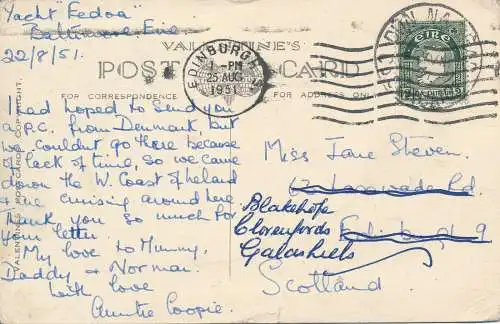 Yacht "Fedoa"
Baltimore, Eire
22/8/51.
VALENTINE'S
POST CARD
FOR CORRESPONDENCE
FOR ADDRESS ONLY
EDINBURGH
1 - PM
25 AUG
1951
ÉIRE
VALENTINE'S POSTCARDS COPYRIGHT
I had hoped to send you
a P.C. from Denmark, but
we couldn't go there because
of lack of time, so we came
down the W. Coast of Ireland
& are cruising around here
Thank you so much for
your letter.
My love to Mummy,
Daddy & Norman.
with love
Auntie Coopie.
Miss Jane Steven.
Rd
Blakehope
Clovenfords
Edinburgh 9
Galashiels
Scotland